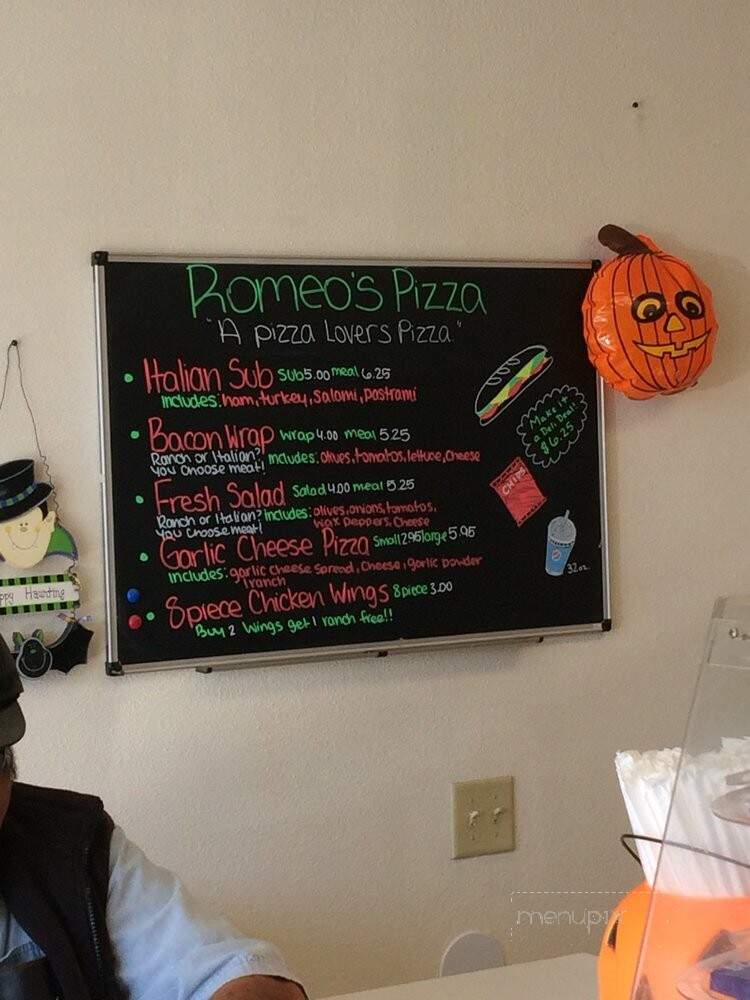 Romeo's Pizza
"A pizza Lovers Pizza"
Italian Sub sub 5.00 meal 6.25
includes: ham, turkey, Salami, pastrami
Bacon Wrap wrap 4.00 meal 5.25
Ranch or Italian? includes: olives, tomatos, lettuce, cheese
you choose meat!
Fresh Salad Salad 4.00 meal 5.25
Ranch or Italian? includes: olives, onions, tomatos,
you choose meat! wax peppers, cheese
Garlic Cheese Pizza Small 2.95 large 5.95
includes: garlic cheese spread, cheese, garlic powder
1 ranch
8piece Chicken Wings 8 piece 3.00
Buy 2 Wings get 1 ranch free!!
Make it
a Deli Deal!
$6.25
CHIPS
32oz.
ppy Haunting
menupix